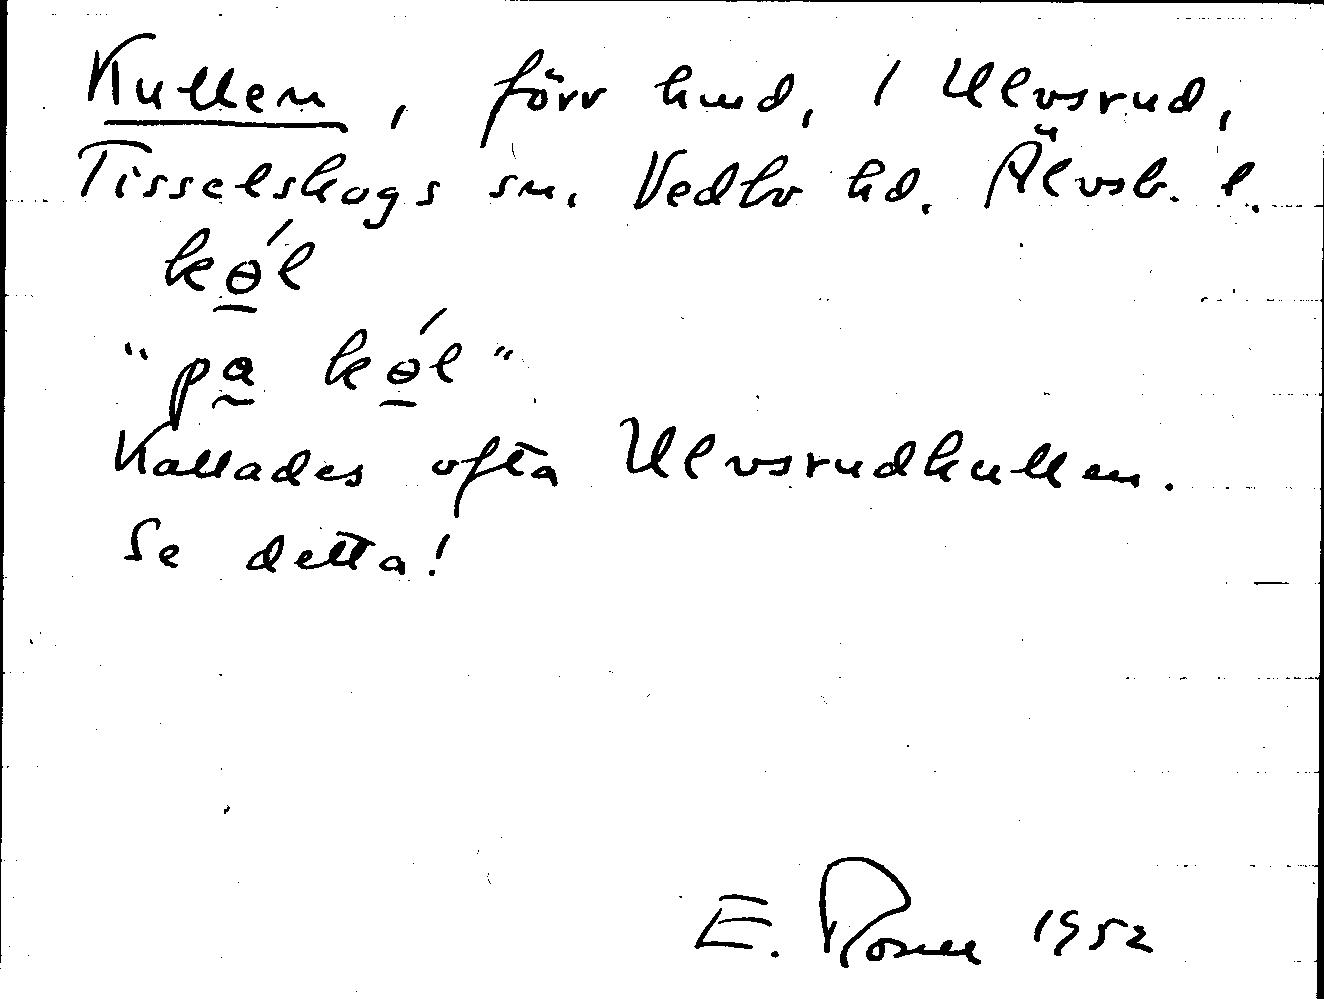 Kullen, förr hmd, 1 Ulvsrud,
Tisselskogs sn. Vedbo hd. Älvsb. l.
kɵ́l
"pa kɵ́l"
Kallades ofta Ulvsrudkullen.
Se detta!
E. Rosell 1952